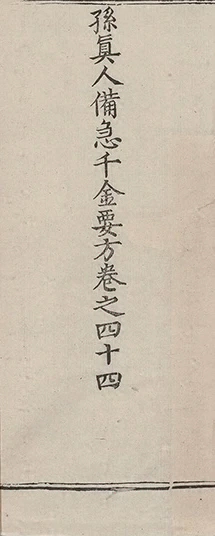 孫真人備急千金要方卷之四十四